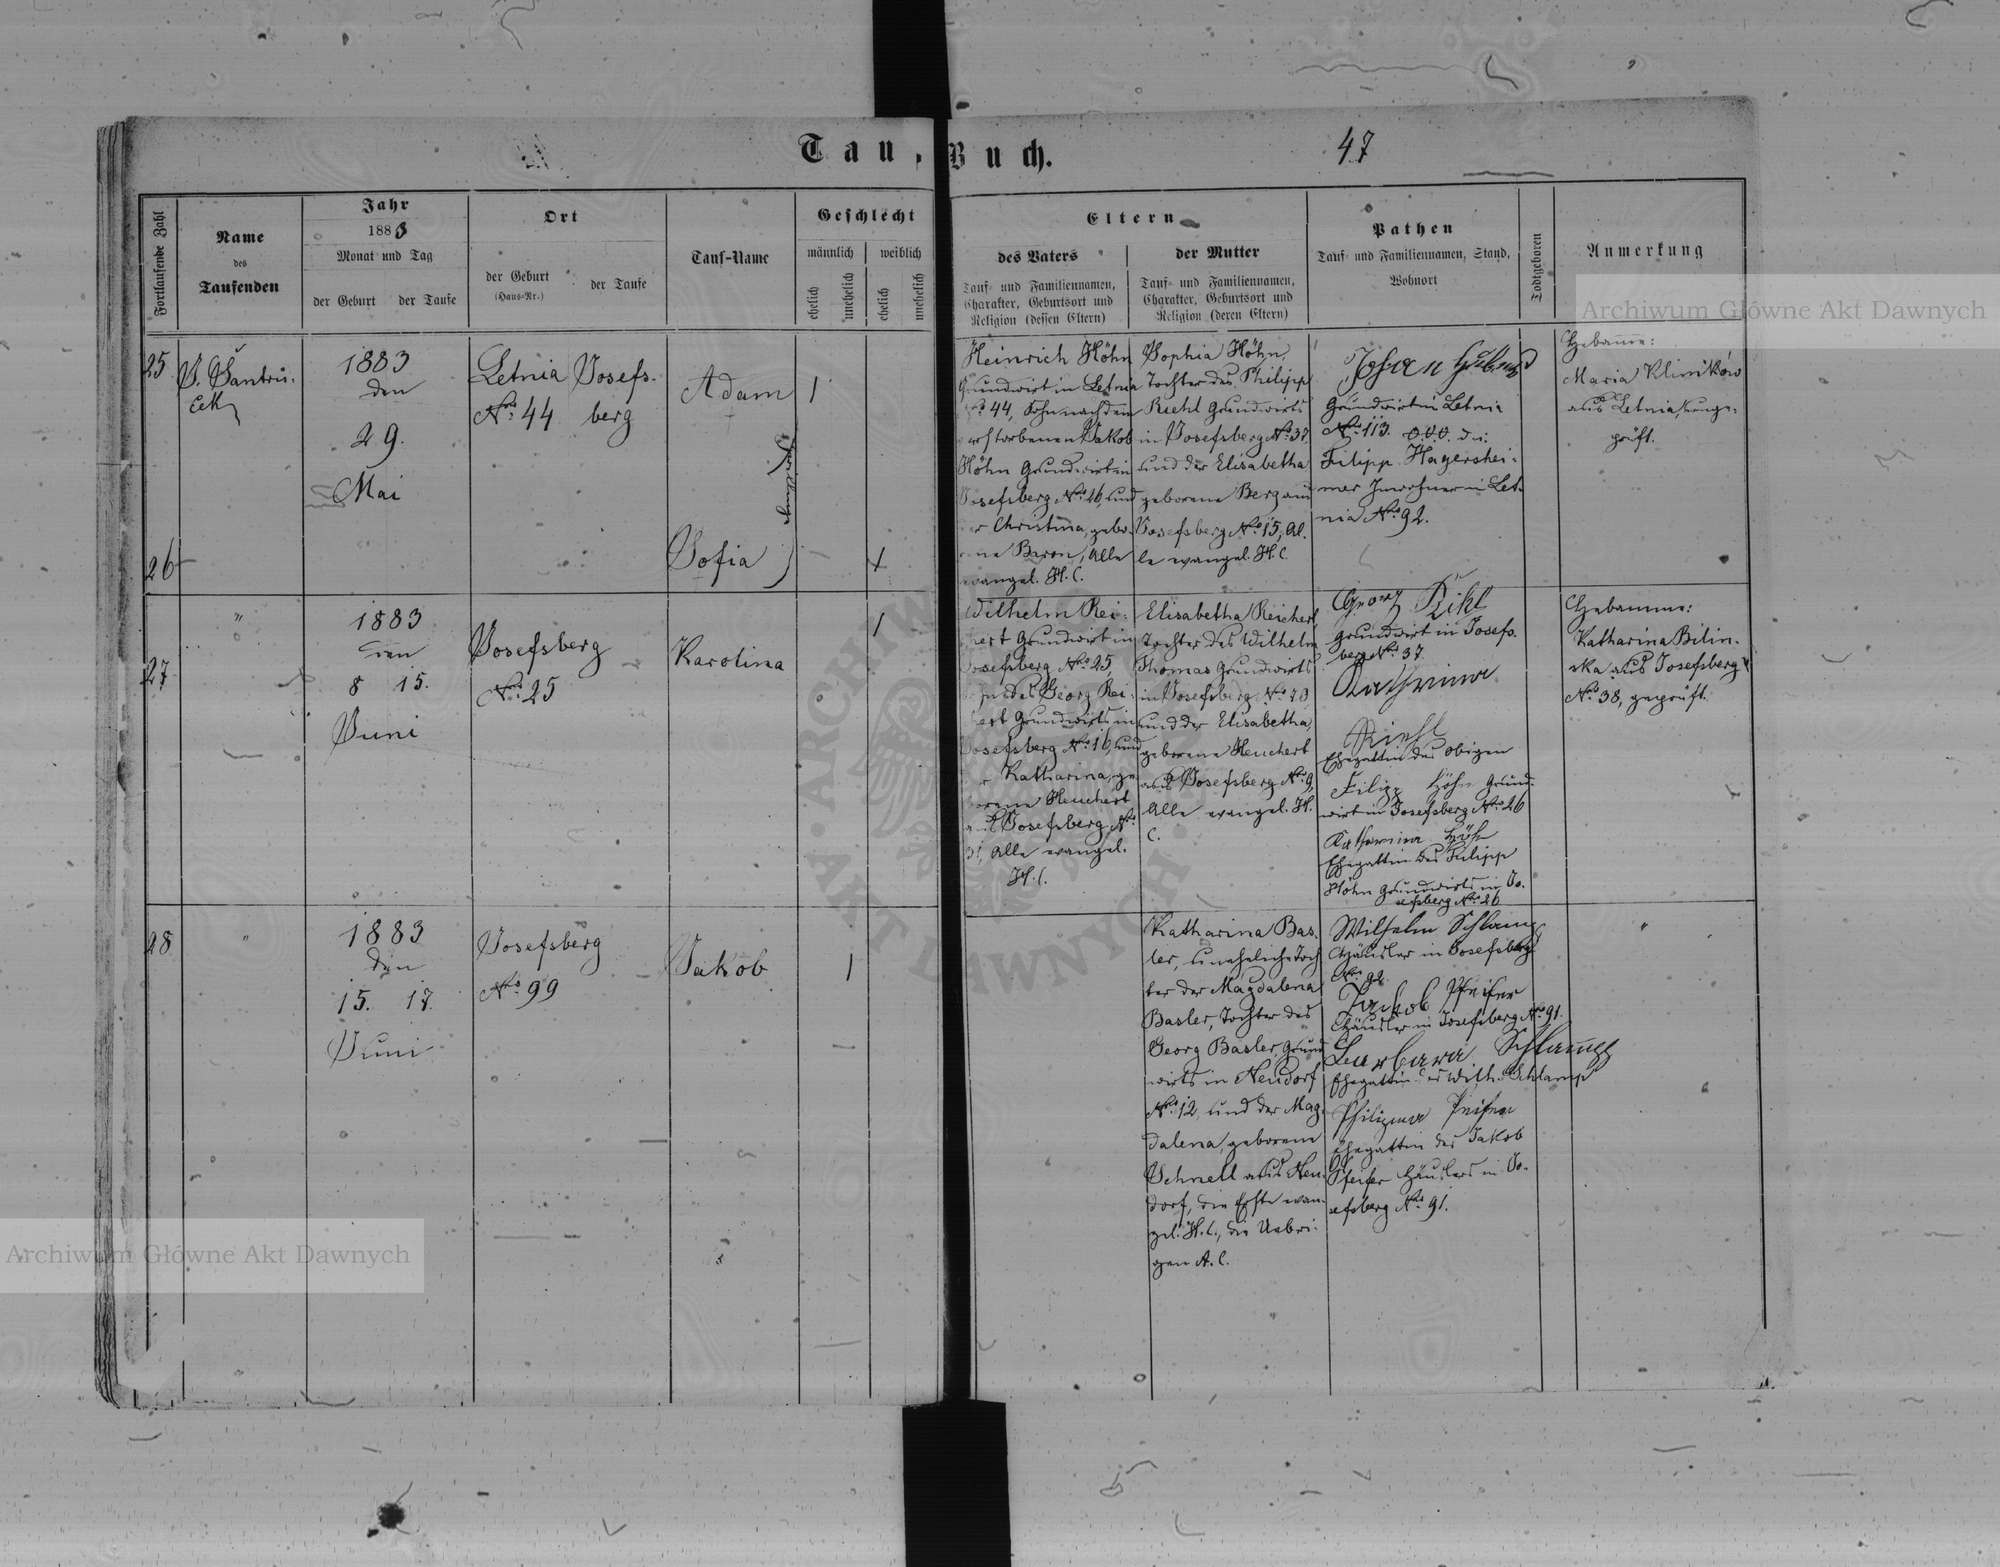 Tauf-Buch.
47
Fortlaufende Zahl
Name
des
Taufenden
Jahr
1883
Monat und Tag
der Geburt der Taufe
Ort
der Geburt
(Haus-Nr.)
der Taufe
Tauf-Name
Geschlecht
männlich weiblich
ehelich unehelich ehelich unehelich
Eltern
des Vaters
Tauf- und Familiennamen,
Charakter, Geburtsort und
Religion (dessen Eltern)
der Mutter
Tauf- und Familiennamen,
Charakter, Geburtsort und
Religion (deren Eltern)
Pathen
Tauf- und Familiennamen, Stand,
Wohnort
Todtgeboren
Anmerkung
25
1883
den
29.
Mai
Letnia
No. 44
Josefs-
berg
Adam
1
Zwillinge
Heinrich Höhn
Grundwirt in Letnia
No 44, Sohn nach dem
verstorbenen Jakob
Höhn Grundwirt in
Josefsberg No 26, und
der Christina, gebo-
rene Baron, Alle
evangel. H. C.
Sophia Höhn,
Tochter des Philipp
Riehl Grundwirts
in Josefsberg No 37
und der Elisabetha
geborene Berg aus
Josefsberg No 15, Al-
le evangel. H. C.
Johan
Grundwirt in Letnia
No 113.
Filipp Hagershei-
mer Inwohner in Let-
nia No 92.
Hebamme:
Maria Kliników
aus Letnia, unge-
prüft.
26
Sofia
1
27
"
1883
den
8 15.
Juni
Josefsberg
No. 25
Karolina
1
Wilhelm Rei-
chert Grundwirt in
Josefsberg No 25,
Sohn des Georg Rei-
chert Grundwirts in
Josefsberg No 16, und
der Katharina, ge-
borene Heuchert
aus Josefsberg No
31, Alle evangel.
H. C.
Elisabetha Reichert,
Tochter des Wilhelm
Thomas Grundwirts
in Josefsberg No
und der Elisabetha,
geborene Heuchert
aus Josefsberg No 9,
Alle evangel. H.
C.
Georg Rihl
Grundwirt in Josefs-
berg No 37.
Katharina
Riehl
Ehegattin des obigen
Filipp Höhn Grund-
wirt in Josefsberg No 26
Katharina Höhn
Ehegattin des Filipp
Höhn Grundwirts in Jo-
sefsberg No 26
Hebamme:
Katharina Bilin-
ska aus Josefsberg
No 38, geprüft.
28
"
1883
den
15. 17.
Juni
Josefsberg
No 99
Jakob
1
Katharina Bas-
ler, uneheliche Toch
ter der Magdalena
Basler, Tochter des
Georg Basler, Grund
wirts in Neudorf
No 12, und der Mag-
dalena, geborene
Schnell aus Neu-
dorf, die Erste evan-
gel. H. C., die Uebri-
gen A. C.
Wilhelm Schlamp
Häusler in Josefsberg
No 92.
Jackob Pfeifer
Häusler in Josefsberg No 91.
Barbara Schlamp
Ehegattin des Wilh. Schlamp
Philipina Pfeifer
Ehegattin des Jakob
Pfeifer Häuslers in Jo-
sefsberg No 91.
"
Archiwum Główne Akt Dawnych
Archiwum Główne Akt Dawnych
ARCHIWUM
AKT DAWNYCH